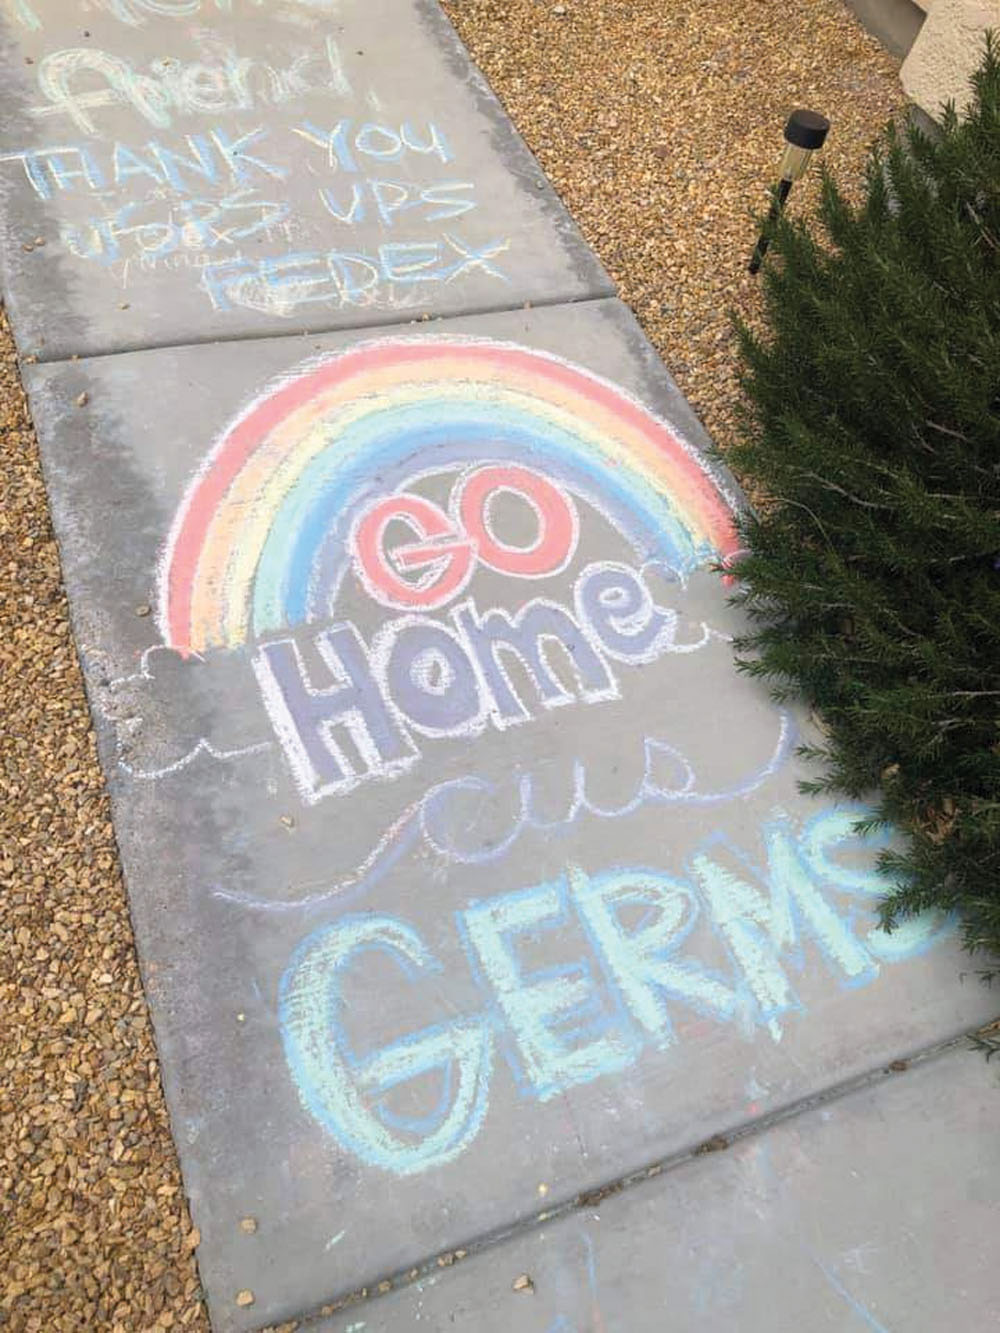 Friend,
THANK YOU
USPS UPS
FEDEX
GO
Home
cus
GERMS